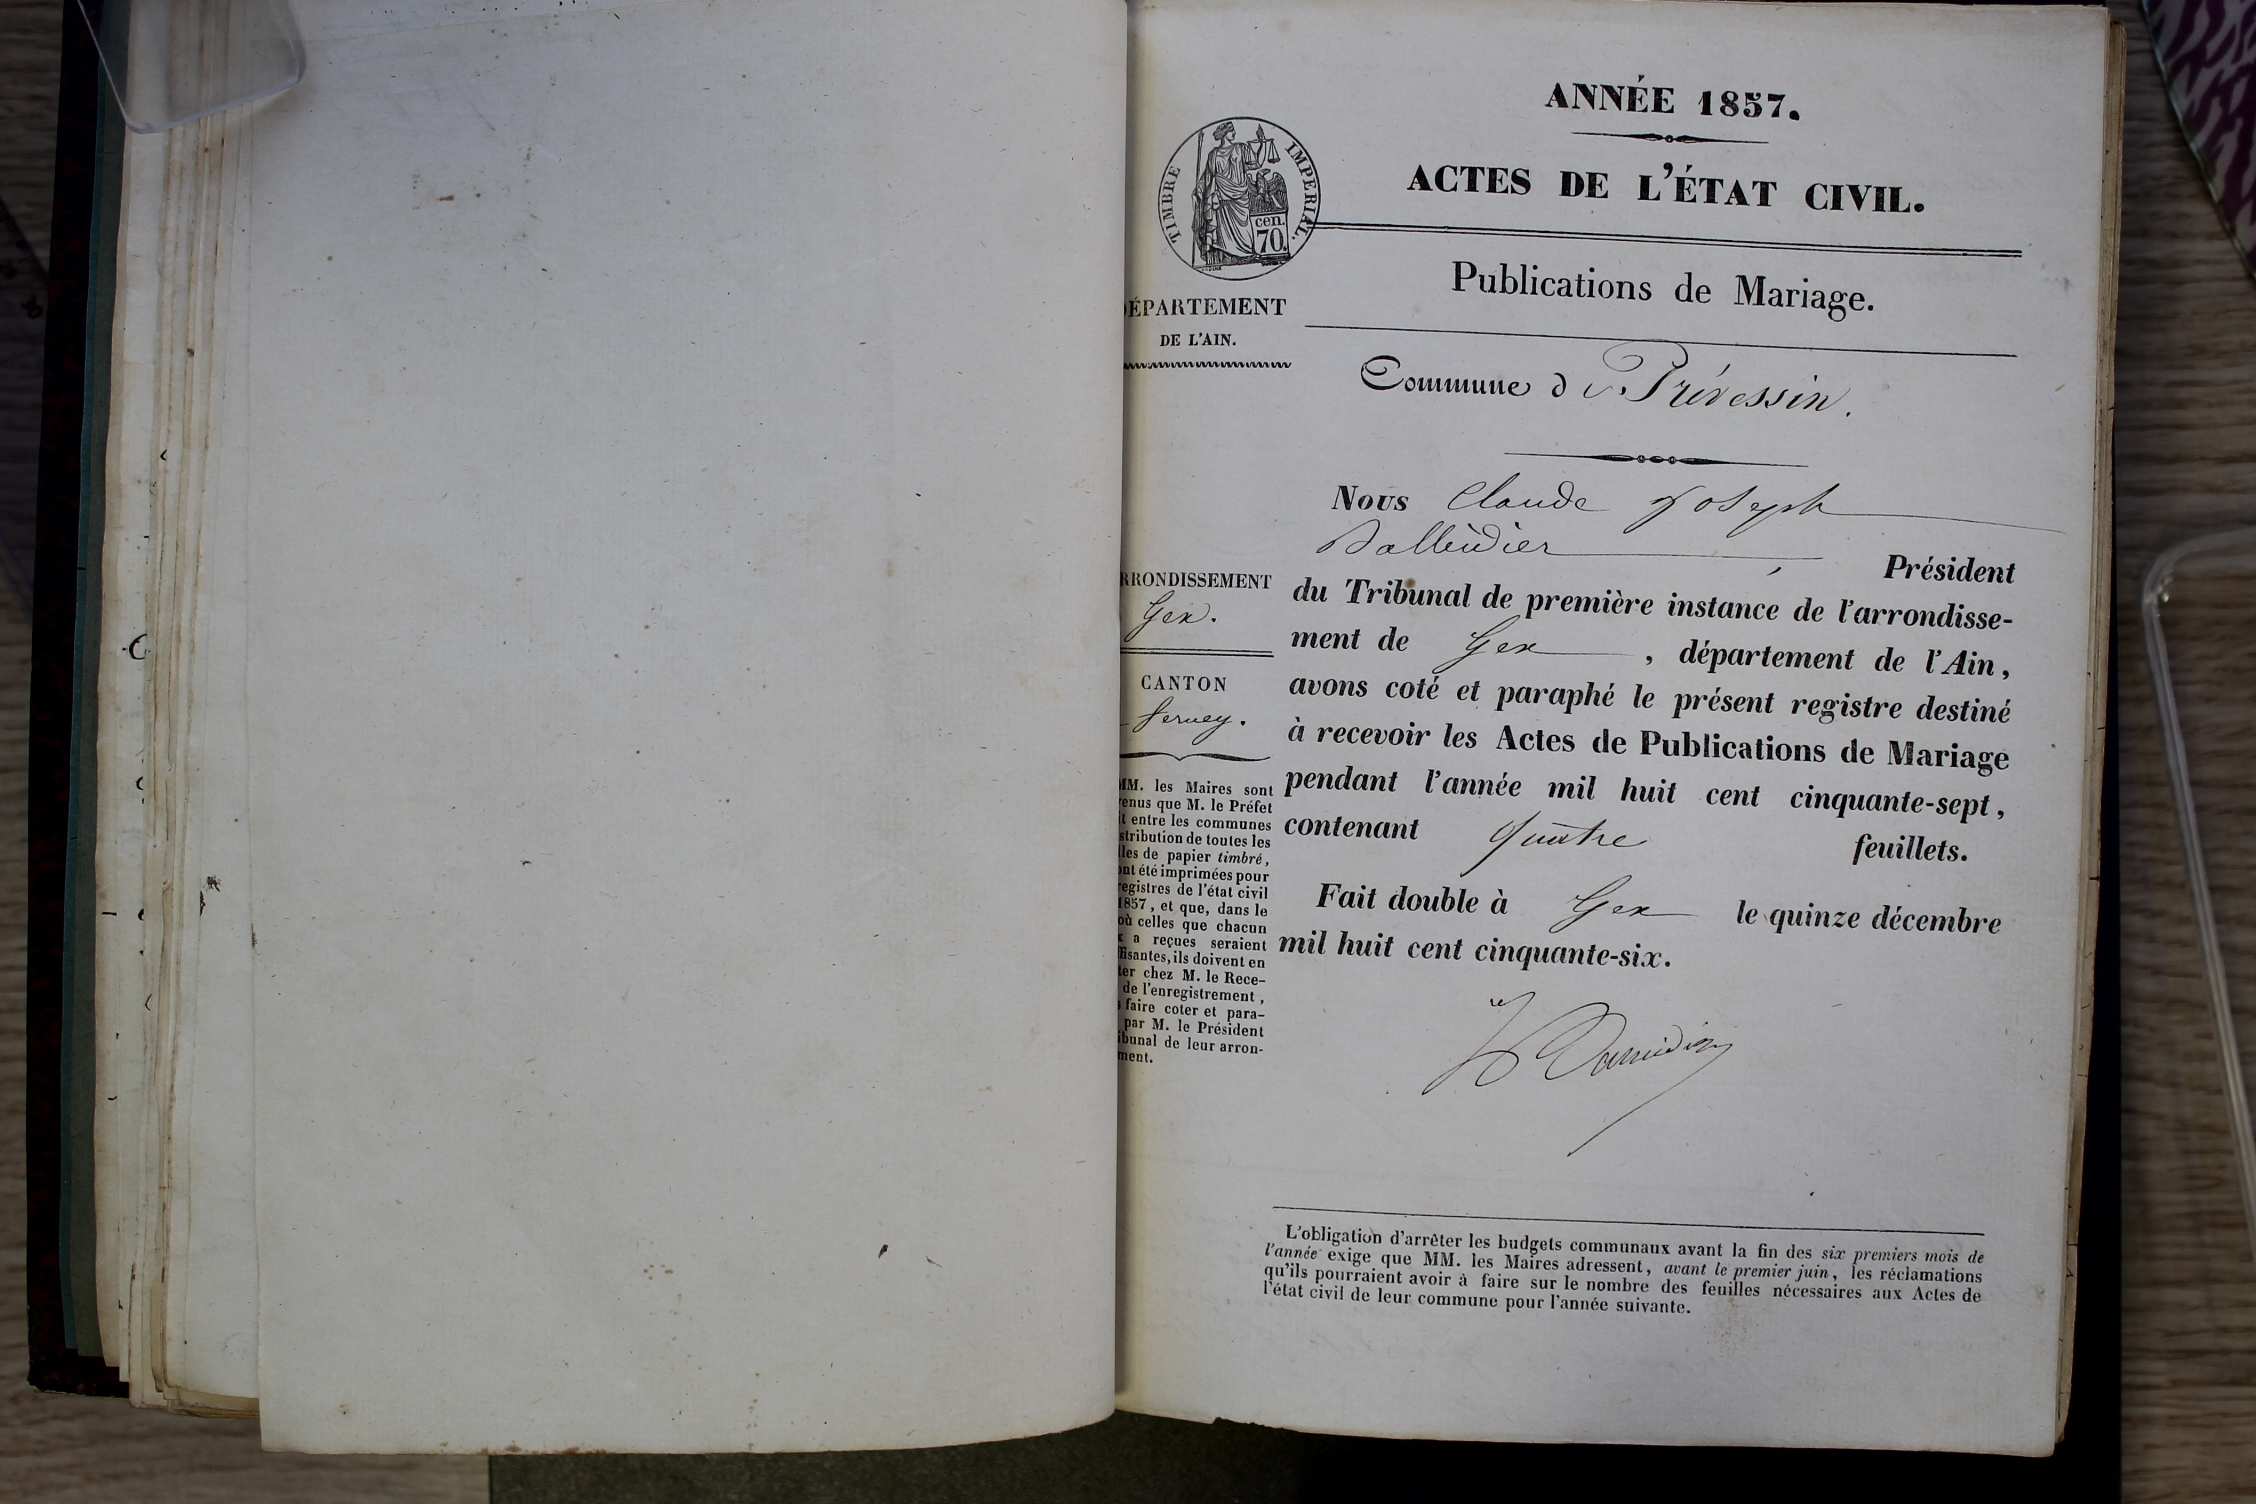 ANNÉE 1857.
ACTES DE L'ÉTAT CIVIL.
TIMBRE IMPERIAL.
cen.
70.
Publications de Mariage.
DÉPARTEMENT
DE L'AIN.
Commune de Prévessin.
Nous Claude Joseph
Président
du Tribunal de première instance de l'arrondisse-
ment de Gex, département de l'Ain,
avons coté et paraphé le présent registre destiné
à recevoir les Actes de Publications de Mariage
pendant l'année mil huit cent cinquante-sept,
contenant quatre feuillets.
Fait double à Gex le quinze décembre
mil huit cent cinquante-six.
RRONDISSEMENT
Gex.
CANTON
Ferney.
MM. les Maires sont
enus que M. le Préfet
t entre les communes
stribution de toutes les
lles de papier timbré,
ont été imprimées pour
registres de l'état civil
1857, et que, dans le
où celles que chacun
x a reçues seraient
ffisantes, ils doivent en
ter chez M. le Rece-
de l'enregistrement,
faire coter et para-
par M. le Président
ibunal de leur arron-
ment.
L'obligation d'arrêter les budgets communaux avant la fin des six premiers mois de
l'année exige que MM. les Maires adressent, avant le premier juin, les réclamations
qu'ils pourraient avoir à faire sur le nombre des feuilles nécessaires aux Actes de
l'état civil de leur commune pour l'année suivante.